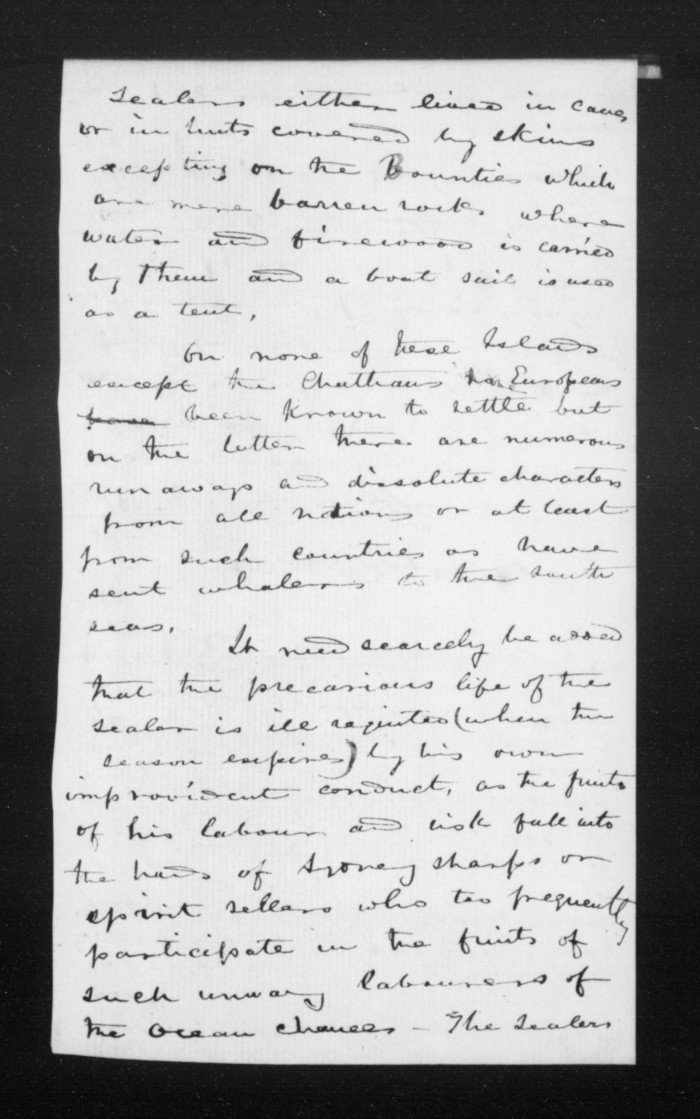 Sealers either lived in caves
or in huts covered by skins
excepting on the Bounties which
are mere barren rocks where
water and firewood is carried
by them and a boat sail is used
as a tent,
On none of these Islands
except the Chathams has Europeans
been known to settle but
on the latter there are numerous
run aways and dissolute characters
from all nations or at least
from such countries as have
sent whalers to the south
seas.
It need scarcely be added
that the precarious life of the
sealer is ill requited (when the
season expires) by his own
improvident conduct, as the fruits
of his labour and risk fall into
the hands of Sydney sharps or
spirit sellers who too frequently
participate in the fruits of
such unwary labourers of
the Ocean chances - The Sealers